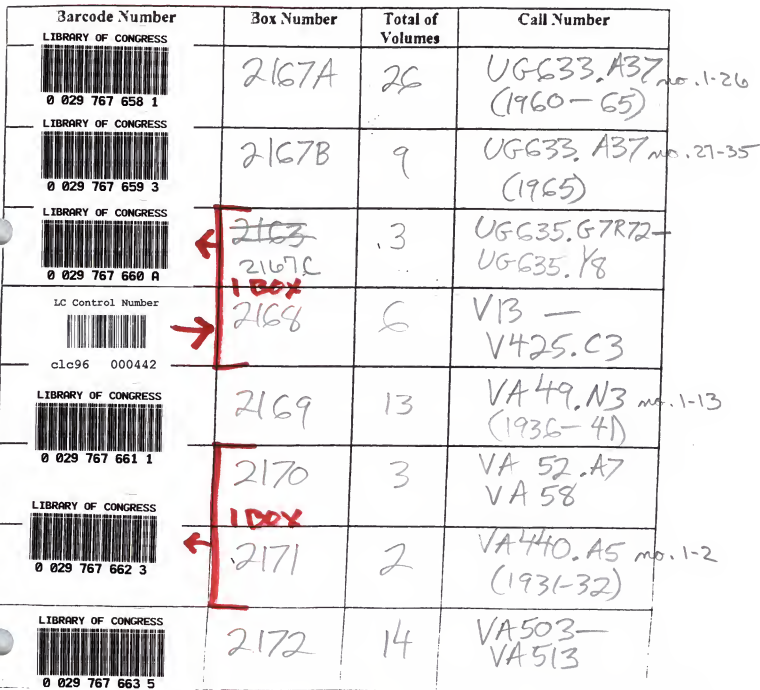 Barcode Number Box Number Total of Volumes Call Number
LIBRARY OF CONGRESS
0 029 767 658 1
2167A 26 UG633.A37 no. 1-26
(1960-65)
LIBRARY OF CONGRESS
0 029 767 659 3
2167B 9 UG633.A37 no. 27-35
(1965)
LIBRARY OF CONGRESS
0 029 767 660 A
2163 3 UG635.G7R72-
2167C UG635.Y8
1 BOX
LC Control Number
clc96 000442
2168 6 V13 -
V425.C3
LIBRARY OF CONGRESS
0 029 767 661 1
2169 13 VA49.N3 no. 1-13
(1936-41)
2170 3 VA 52.A7
VA 58
1 BOX
LIBRARY OF CONGRESS
0 029 767 662 3
2171 2 VA440.A5 no. 1-2
(1931-32)
LIBRARY OF CONGRESS
0 029 767 663 5
2172 14 VA503-
VA513